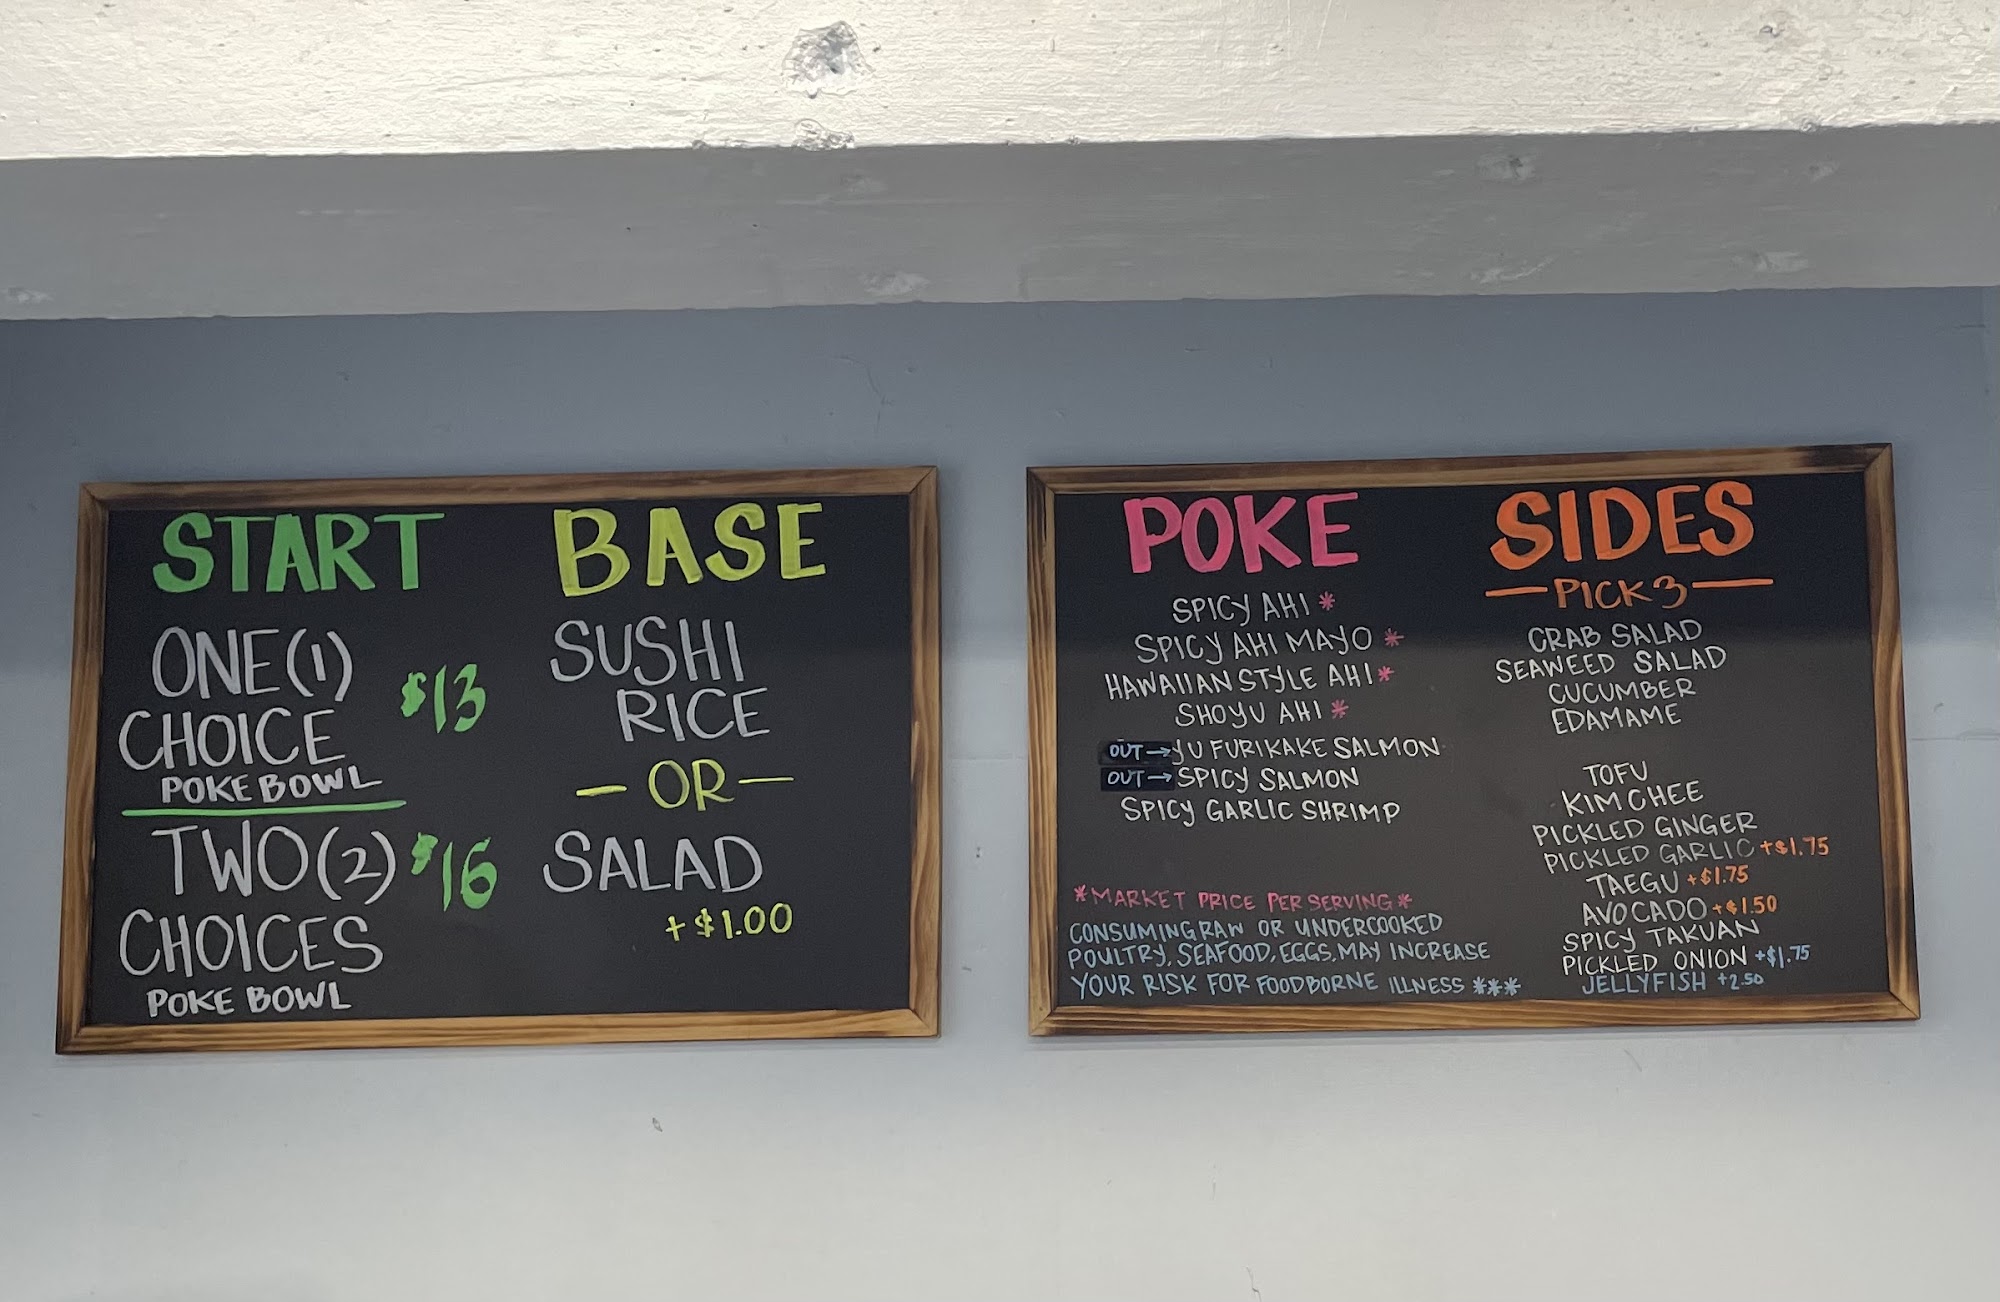 START
ONE(1)
CHOICE
$13
POKE BOWL
TWO(2)
$16
CHOICES
POKE BOWL
BASE
SUSHI
RICE
— OR —
SALAD
+$1.00
POKE
SPICY AHI *
SPICY AHI MAYO *
HAWAIIAN STYLE AHI *
SHOYU AHI *
OUT→YU FURIKAKE SALMON
OUT→ SPICY SALMON
SPICY GARLIC SHRIMP
*MARKET PRICE PER SERVING*
CONSUMING RAW OR UNDERCOOKED
POULTRY, SEAFOOD, EGGS, MAY INCREASE
YOUR RISK FOR FOODBORNE ILLNESS ***
SIDES
— PICK 3 —
CRAB SALAD
SEAWEED SALAD
CUCUMBER
EDAMAME
TOFU
KIM CHEE
PICKLED GINGER
PICKLED GARLIC +$1.75
TAEGU +$1.75
AVOCADO +$1.50
SPICY TAKUAN
PICKLED ONION +$1.75
JELLYFISH +2.50